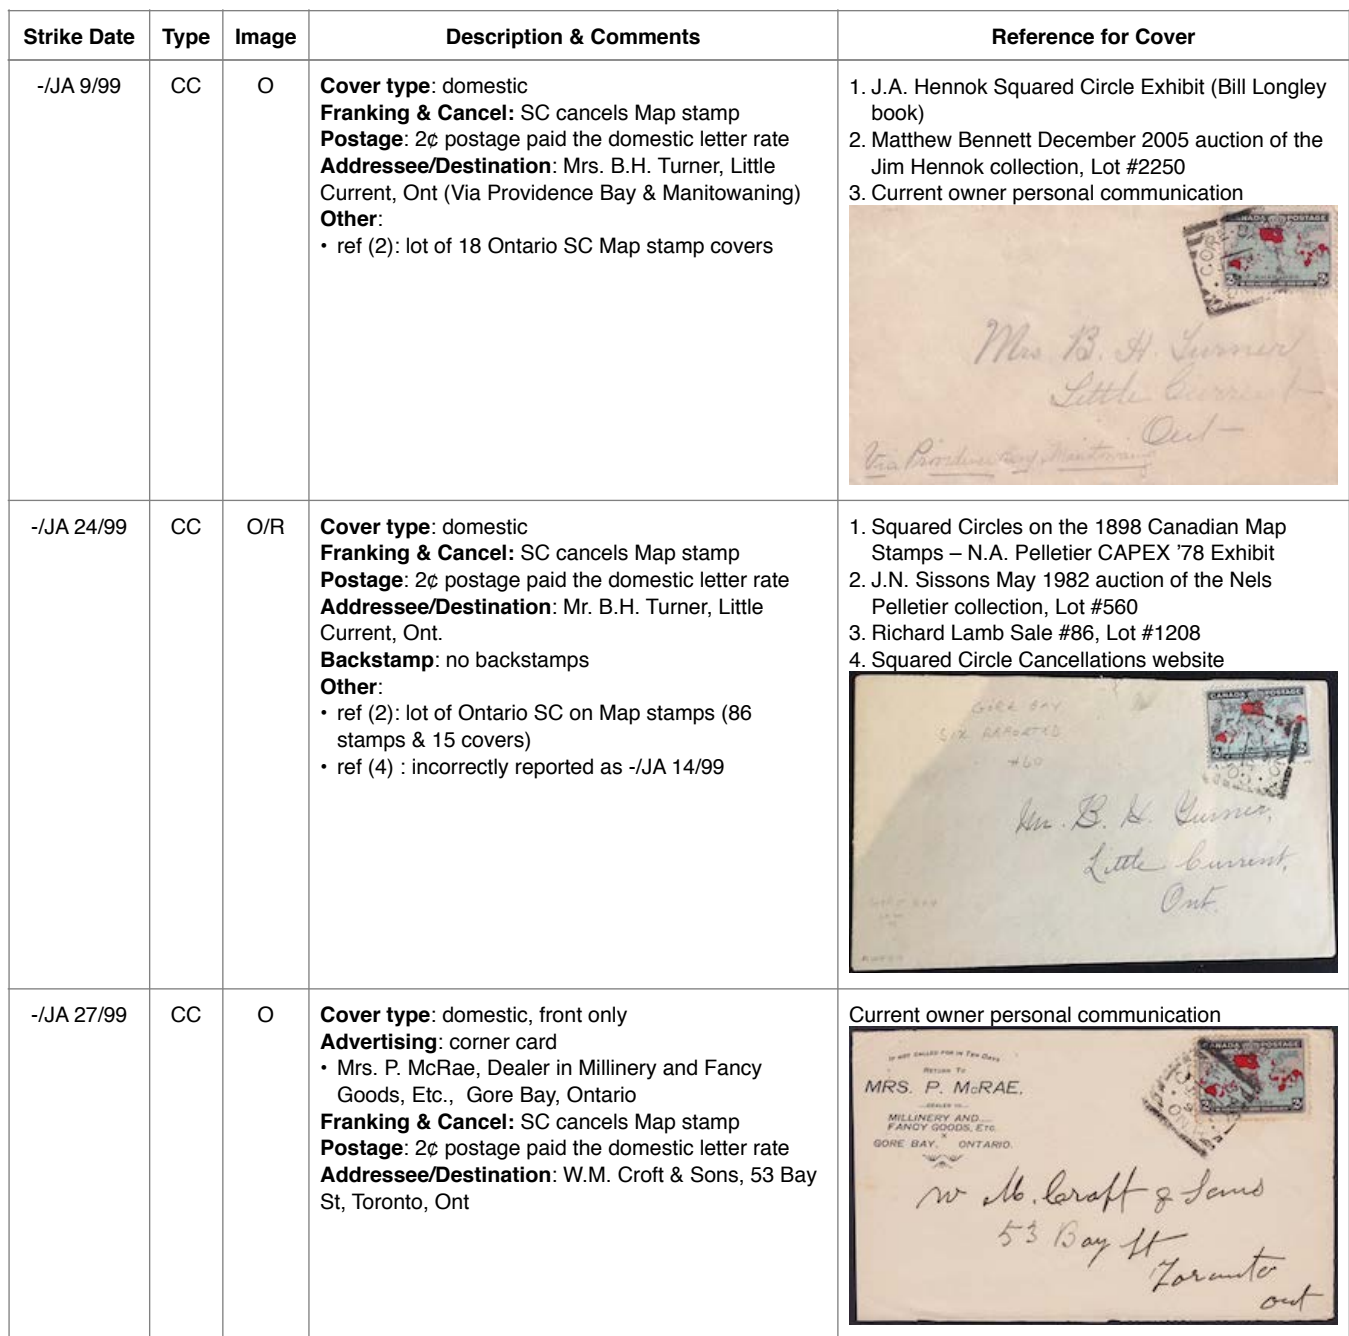 Strike Date Type Image Description & Comments Reference for Cover
-/JA 9/99 CC O
Cover type: domestic
Franking & Cancel: SC cancels Map stamp
Postage: 2¢ postage paid the domestic letter rate
Addressee/Destination: Mrs. B.H. Turner, Little
Current, Ont (Via Providence Bay & Manitowaning)
Other:
• ref (2): lot of 18 Ontario SC Map stamp covers
1. J.A. Hennok Squared Circle Exhibit (Bill Longley
book)
2. Matthew Bennett December 2005 auction of the
Jim Hennok collection, Lot #2250
3. Current owner personal communication
CANADA POSTAGE
2 2
Mrs B. H. Turner
Little Current
Ont
Via Providence Bay
-/JA 24/99 CC O/R
Cover type: domestic
Franking & Cancel: SC cancels Map stamp
Postage: 2¢ postage paid the domestic letter rate
Addressee/Destination: Mr. B.H. Turner, Little
Current, Ont.
Backstamp: no backstamps
Other:
• ref (2): lot of Ontario SC on Map stamps (86
stamps & 15 covers)
• ref (4) : incorrectly reported as -/JA 14/99
1. Squared Circles on the 1898 Canadian Map
Stamps – N.A. Pelletier CAPEX ’78 Exhibit
2. J.N. Sissons May 1982 auction of the Nels
Pelletier collection, Lot #560
3. Richard Lamb Sale #86, Lot #1208
4. Squared Circle Cancellations website
GORE BAY
SIX REPORTED
CANADA POSTAGE
2 2
Mr. B. H. Turner,
Little Current,
Ont.
-/JA 27/99 CC O
Cover type: domestic, front only
Advertising: corner card
• Mrs. P. McRae, Dealer in Millinery and Fancy
Goods, Etc., Gore Bay, Ontario
Franking & Cancel: SC cancels Map stamp
Postage: 2¢ postage paid the domestic letter rate
Addressee/Destination: W.M. Croft & Sons, 53 Bay
St, Toronto, Ont
Current owner personal communication
IF NOT CALLED FOR IN TEN DAYS
RETURN TO
MRS. P. McRAE.
DEALER IN
MILLINERY AND
FANCY GOODS, ETC.
GORE BAY, ONTARIO.
CANADA POSTAGE
2
W M. Croft & Sons
53 Bay St
Toronto
Ont